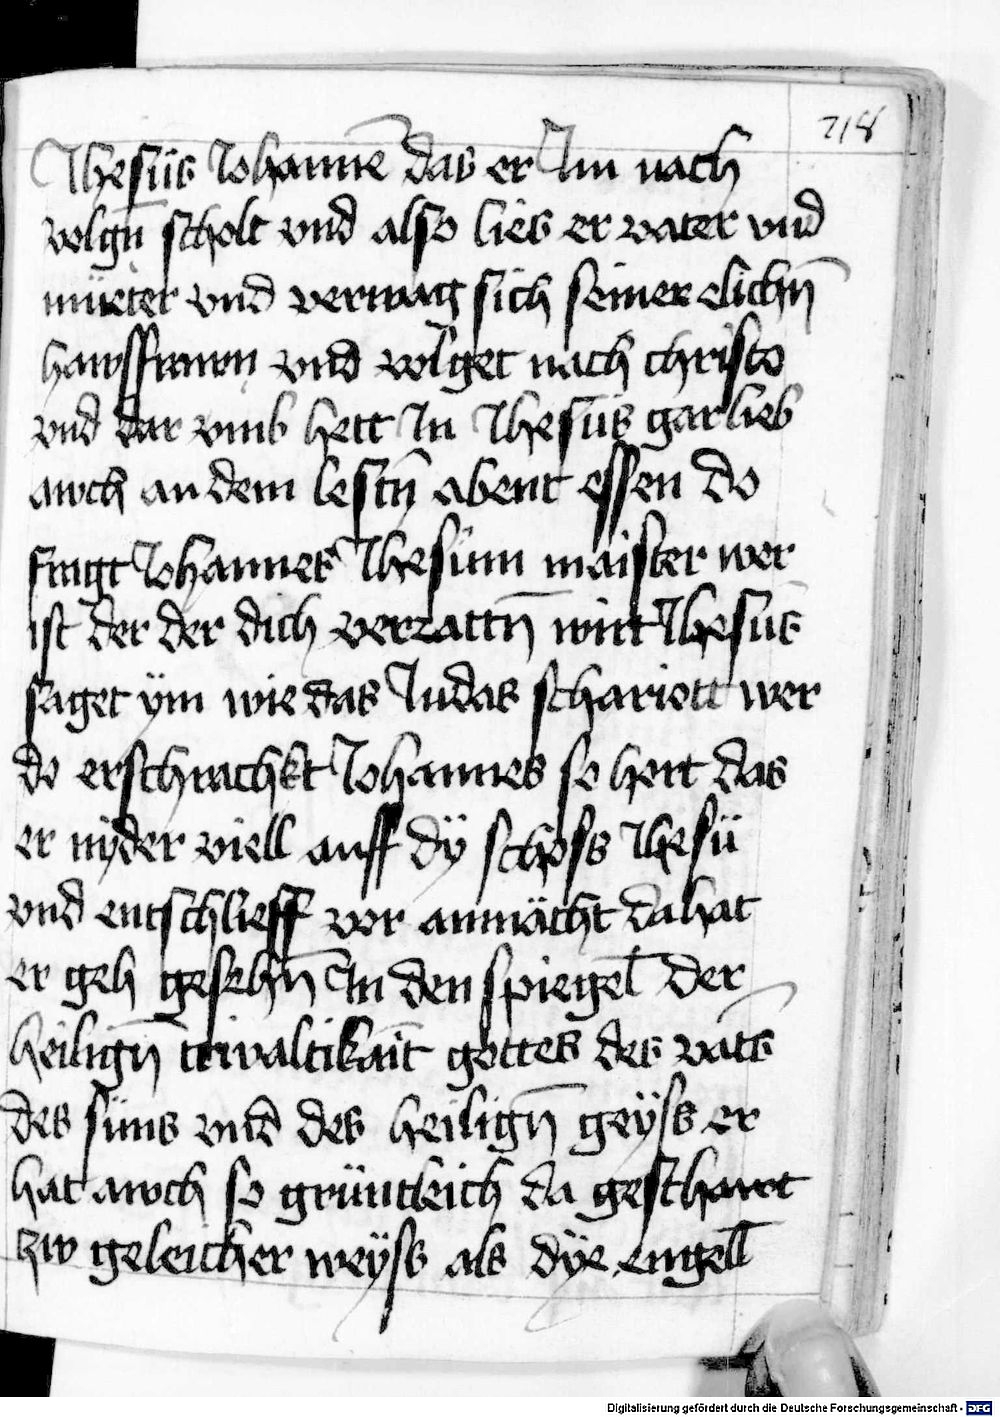 218
Jhesus Johanne das er Im nach
volgn̄ scholt vnd also lies er vater vnd
mueter vnd verwag sich seiner elichn̄
hawsfrawn vnd volget nach christo
vnd dar vmb hett In Jhesus gar lieb
awch an dem lestn̄ abent essen do
fragt Johannes Jhesum maister wer
ist der der dich verrattn̄ wirt Jhesus
saget ÿm wie das Judas schariott wer
do erschrachkt Johannes so hert das
er nÿder viell auff dÿ schoss Jhesü
vnd entschlieff vor anmächt da hat
er geh gesehn̄ In den spiegel der
heilign̄ trivaltikait gottes des vats
des süns vnd des heilign̄ geÿss er
hat awch so grüntleich da geschawt
zw geleicher weÿss als dÿe engell
Digitalisierung gefördert durch die Deutsche Forschungsgemeinschaft - DFG